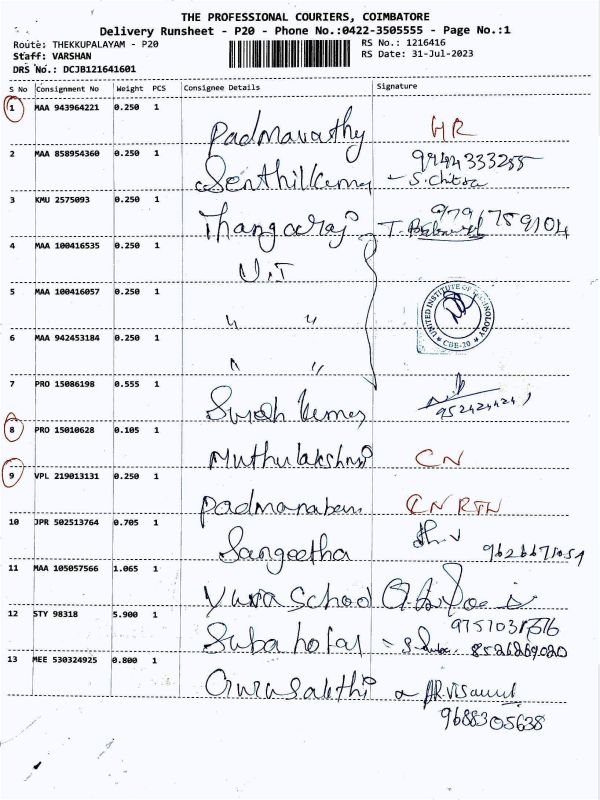 THE PROFESSIONAL COURIERS, COIMBATORE
Delivery Runsheet - P20 - Phone No.:0422-3505555 - Page No.:1
Route: THEKKUPALAYAM - P20 RS No.: 1216416
Staff: VARSHAN RS Date: 31-Jul-2023
DRS No.: DCJB121641601
S No Consignment No Weight PCS Consignee Details Signature
1 MAA 943964221 0.250 1
Padmavathy HR
2 MAA 858954360 0.250 1 9244333255
Senthilkumar - S. Chitra
3 KMU 2575093 0.250 1
Thangaraj T.
4 MAA 100416535 0.250 1
U.T
5 MAA 100416057 0.250 1
" "
UNITED INSTITUTE OF TECHNOLOGY
CBE-20
6 MAA 942453184 0.250 1
" "
7 PRO 15086198 0.555 1
8 PRO 15010628 0.105 1
Muthulakshmi CN
9 VPL 219013131 0.250 1
Padmanaban CN RTN
10 JPR 502513764 0.705 1
Sangeetha
11 MAA 105057566 1.065 1
Yuva School
12 STY 98318 5.900 1
Suba hotal - S. Suba. 8526269020
13 MEE 530324925 0.800 1
Gurusakthi
9688305638